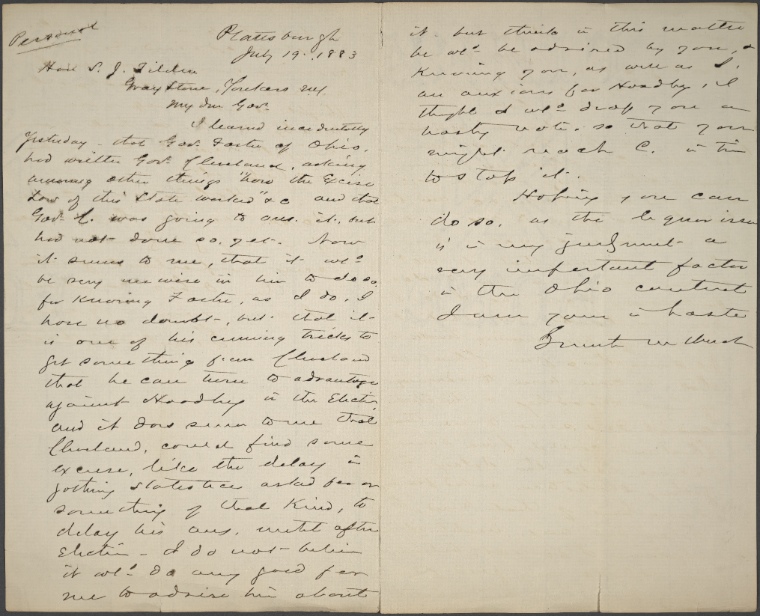 Personal
Plattsburgh
July 19. 1883
Hon S. J. Tilden
Gray Stone, Yonkers NY
My Dear Gov.
I learned incidentally
yesterday - that Gov. Foster of Ohio.
had written Gov. Cleveland, asking
among other things "how the Excise
Law of this State worked" &c and that
Gov. C. was going to ans. it, but
had not done so, yet. Now
it seems to me, that it wld
be very unwise in him to do so,
for knowing Foster, as I do, I
have no doubt, but that it
is one of his cunning tricks to
get something from Cleveland
that he can turn to advantage
against Hoadley in the Election
and it does seem to me that
Cleveland, could find some
excuse, like the delay in
getting statistics asked for or
something of that kind, to
delay his ans. until after
Election - I do not believe
it wld do any good for
me to advise him about
it but think in this matter
he wld be advised by you, &
knowing you, as well as I,
are anxious for Hoadley, I
thght I wld drop you a
hasty note, so that you
might reach C. in time
to stop it.
Hoping you can
do so, as the liquor issue
is in my judgment a
very important factor
in the Ohio contest
I am yours in haste